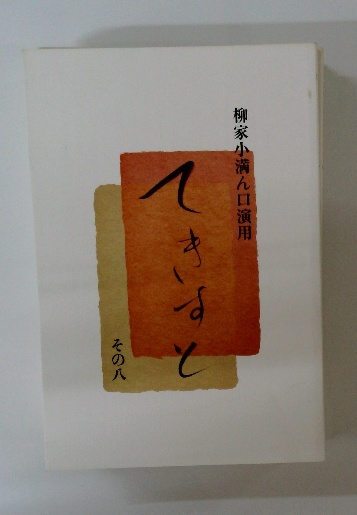 柳家小満ん口演用
てきすと
その八